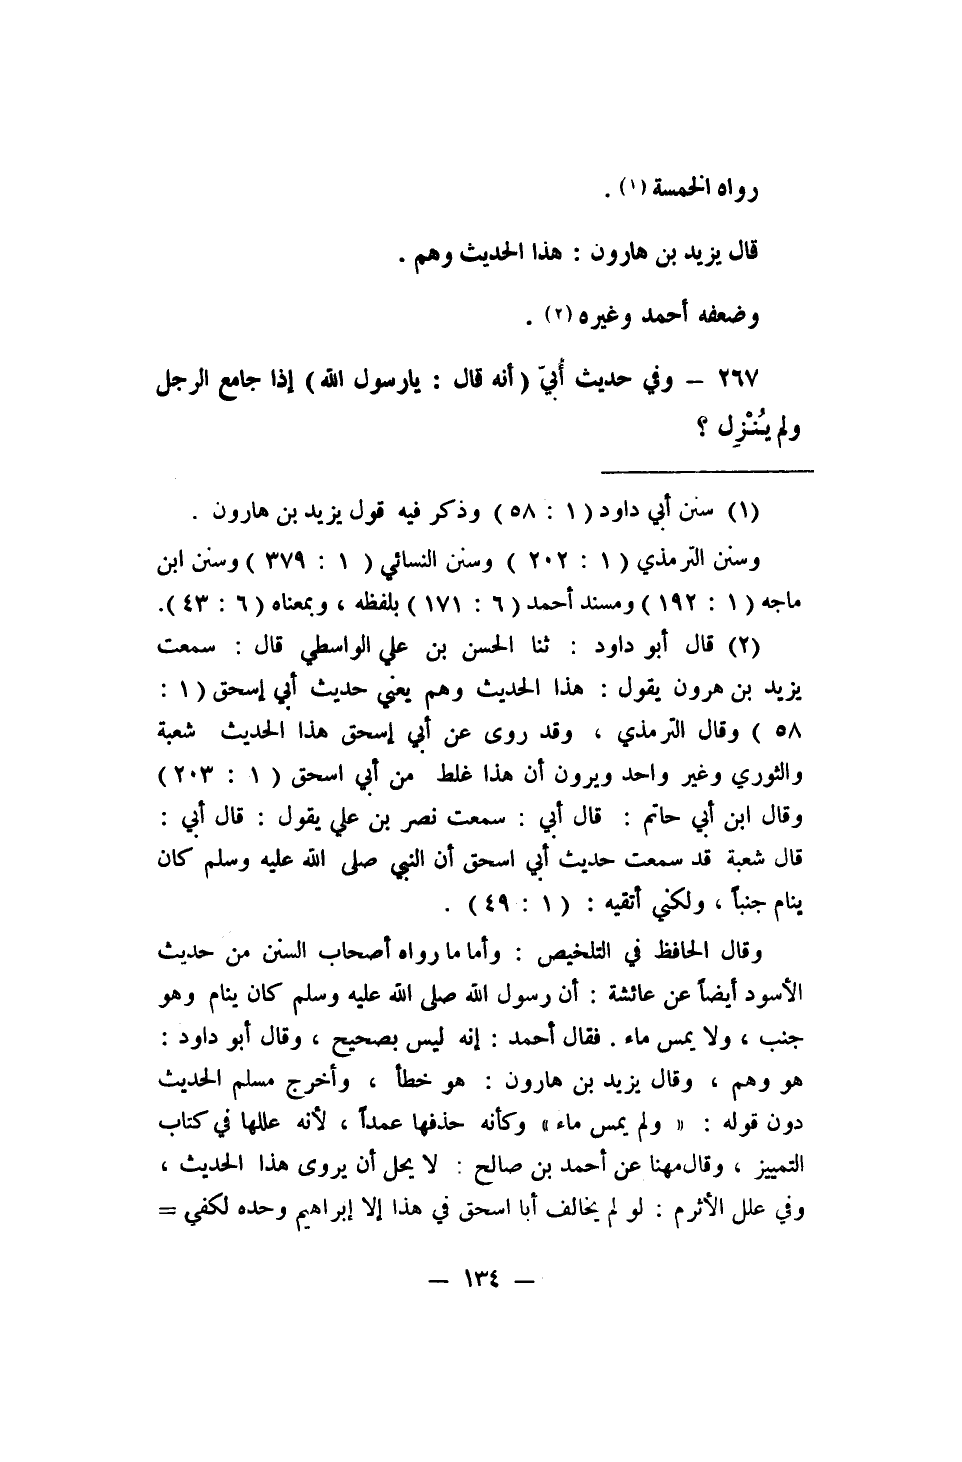 رواه الخمسة (١) .
قال يزيد بن هارون : هذا الحديث وهم .
وضعفه أحمد وغيره (٢) .
٢٦٧ – وفي حديث أُبيّ ( أنه قال : يارسول الله ) إذا جامع الرجل
ولم يُنْزِل ؟
(١) سنن أبي داود ( ١ : ٥٨ ) وذكر فيه قول يزيد بن هارون .
وسنن الترمذي ( ١ : ٢٠٢ ) وسنن النسائي ( ١ : ٣٧٩ ) وسنن ابن
ماجه ( ١ : ١٩٢ ) ومسند أحمد ( ٦ : ١٧١ ) بلفظه ، وبمعناه ( ٦ : ٤٣ ).
(٢) قال أبو داود : ثنا الحسن بن علي الواسطي قال : سمعت
يزيد بن هرون يقول : هذا الحديث وهم يعني حديث أبي إسحق ( ١ :
٥٨ ) وقال الترمذي ، وقد روى عن أبي إسحق هذا الحديث شعبة
والثوري وغير واحد ويرون أن هذا غلط من أبي اسحق ( ١ : ٢٠٣ )
وقال ابن أبي حاتم : قال أبي : سمعت نصر بن علي يقول : قال أبي :
قال شعبة قد سمعت حديث أبي اسحق أن النبي صلى الله عليه وسلم كان
ينام جنباً ، ولكني أتقيه : ( ١ : ٤٩ ) .
وقال الحافظ في التلخيص : وأما ما رواه أصحاب السنن من حديث
الأسود أيضاً عن عائشة : أن رسول الله صلى الله عليه وسلم كان ينام وهو
جنب ، ولا يمس ماء . فقال أحمد : إنه ليس بصحيح ، وقال أبو داود :
هو وهم ، وقال يزيد بن هارون : هو خطأ ، وأخرج مسلم الحديث
دون قوله : « ولم يمس ماء » وكأنه حذفها عمداً ، لأنه عللها في كتاب
التمييز ، وقال مهنا عن أحمد بن صالح : لا يحل أن يروى هذا الحديث ،
وفي علل الأثرم : لو لم يخالف أبا اسحق في هذا إلا إبراهيم وحده لكفي =
– ١٣٤ –